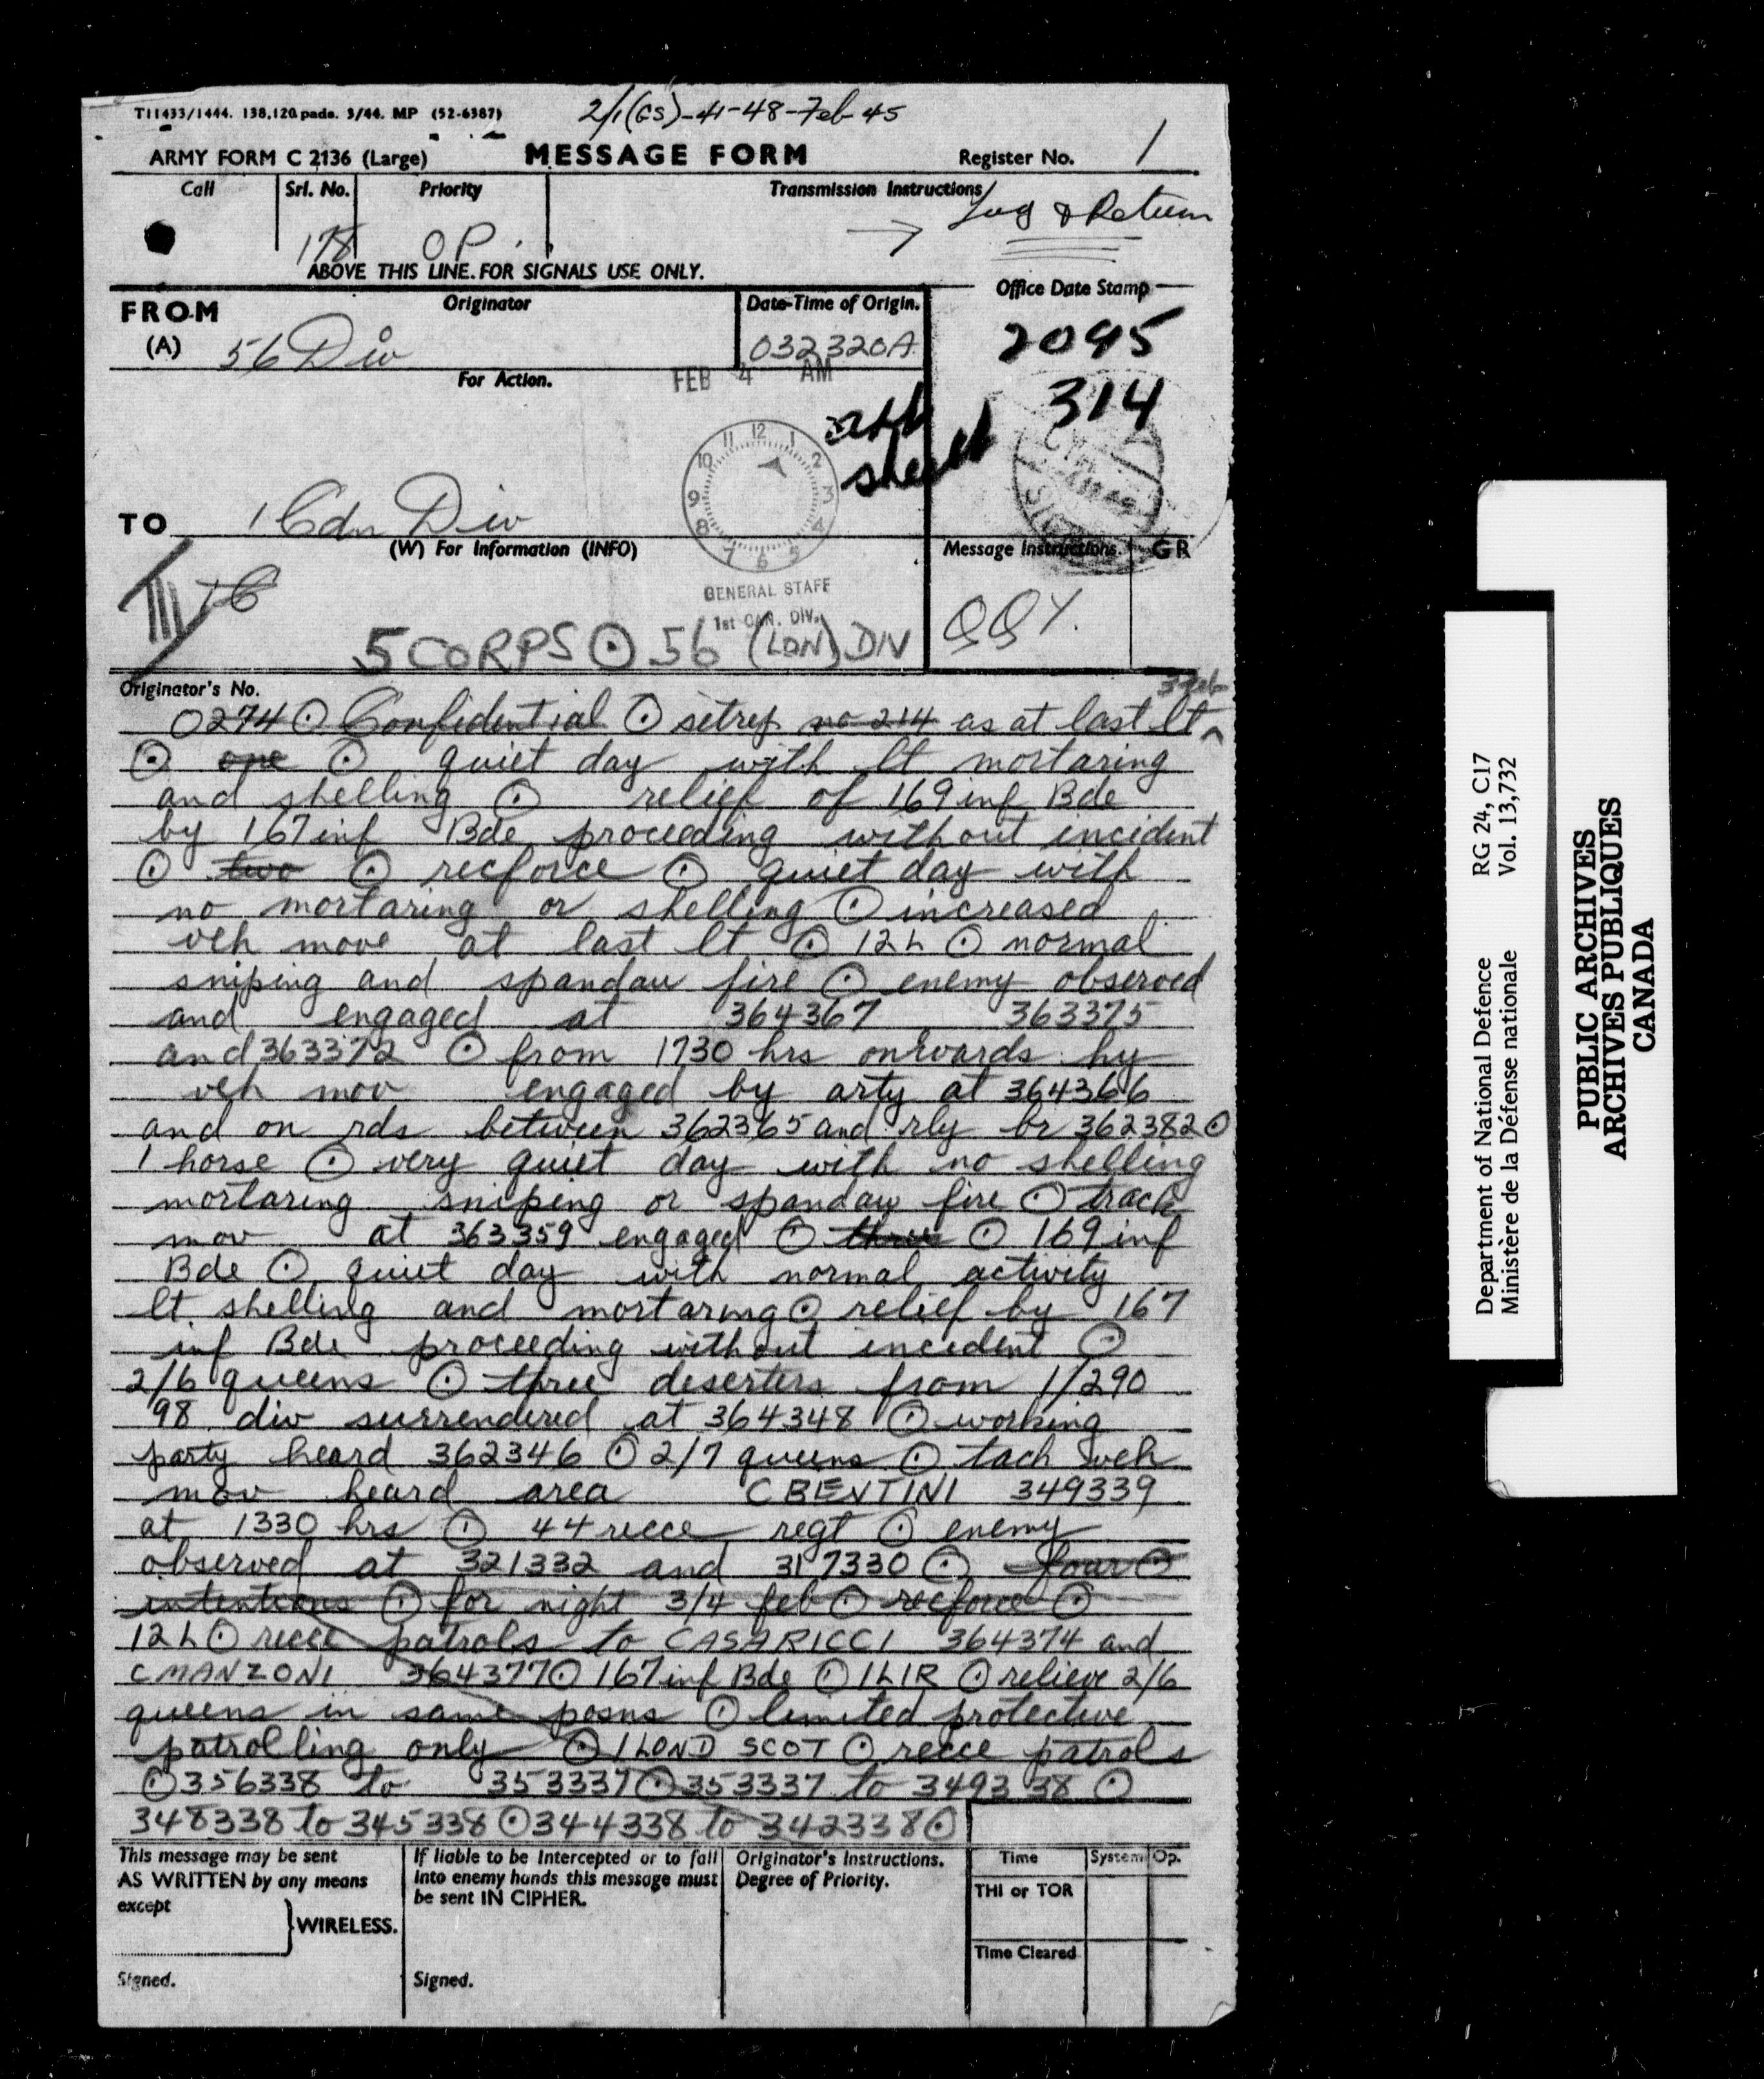 T11433/1444. 138,120 pads. 3/44. MP (52-6387)
2/1(GS)-41-48-Feb 45
ARMY FORM C 2136 (Large)
MESSAGE FORM
Register No. 1
Call
Srl. No.
Priority
Transmission Instructions
Log & Return
178
OP
ABOVE THIS LINE. FOR SIGNALS USE ONLY.
FROM
(A)
Originator
Date-Time of Origin.
Office Date Stamp
56 Div
032320A
2095
For Action.
FEB 4 AM
314
12
1
2
3
4
5
6
7
8
9
10
11
TO 1 Cdn Div
(W) For Information (INFO)
Message Instructions.
GR
GENERAL STAFF
1st CAN. DIV.
5 CORPS ⊙ 56 (LDN) DIV
QQY.
Originator's No.
3 Feb
0274 ⊙ Confidential ⊙ sitrep no 214 as at last lt
⊙ one ⊙ quiet day with lt mortaring
and shelling ⊙ relief of 169 inf Bde
by 167 inf Bde proceeding without incident
⊙ two ⊙ recforce ⊙ quiet day with
no mortaring or shelling ⊙ increased
veh move at last lt ⊙ 12 L ⊙ normal
sniping and spandau fire ⊙ enemy observed
and engaged at 364367 363375
and 363372 ⊙ from 1730 hrs onwards hy
veh mov engaged by arty at 364366
and on rds between 362365 and rly br 362382 ⊙
1 horse ⊙ very quiet day with no shelling
mortaring sniping or spandau fire ⊙ track
mov at 363359 engaged ⊙ three ⊙ 169 inf
Bde ⊙ quiet day with normal activity
lt shelling and mortaring ⊙ relief by 167
inf Bde proceeding without incident ⊙
2/6 queens ⊙ three deserters from 1/290
98 div surrendered at 364348 ⊙ working
party heard 362346 ⊙ 2/7 queens ⊙ tach veh
mov heard area C BENTINI 349339
at 1330 hrs ⊙ 44 recce regt ⊙ enemy
observed at 321332 and 317330 ⊙ four ⊙
intentions ⊙ for night 3/4 feb ⊙ recforce ⊙
12 L ⊙ recce patrols to CASA RICCI 364374 and
C MANZONI 364377 ⊙ 167 inf Bde ⊙ 1 LIR ⊙ relieve 2/6
queens in same posns ⊙ limited protective
patrolling only ⊙ 1 LOND SCOT ⊙ recce patrols
⊙ 356338 to 353337 ⊙ 353337 to 349338 ⊙
348338 to 345338 ⊙ 344338 to 342338 ⊙
This message may be sent
AS WRITTEN by any means
except
WIRELESS.
Signed.
If liable to be intercepted or to fall
into enemy hands this message must
be sent IN CIPHER.
Signed.
Originator's Instructions.
Degree of Priority.
Time
System
Op.
THI or TOR
Time Cleared
Department of National Defence
Ministère de la Défense nationale
RG 24, C17
Vol. 13,732
PUBLIC ARCHIVES
ARCHIVES PUBLIQUES
CANADA